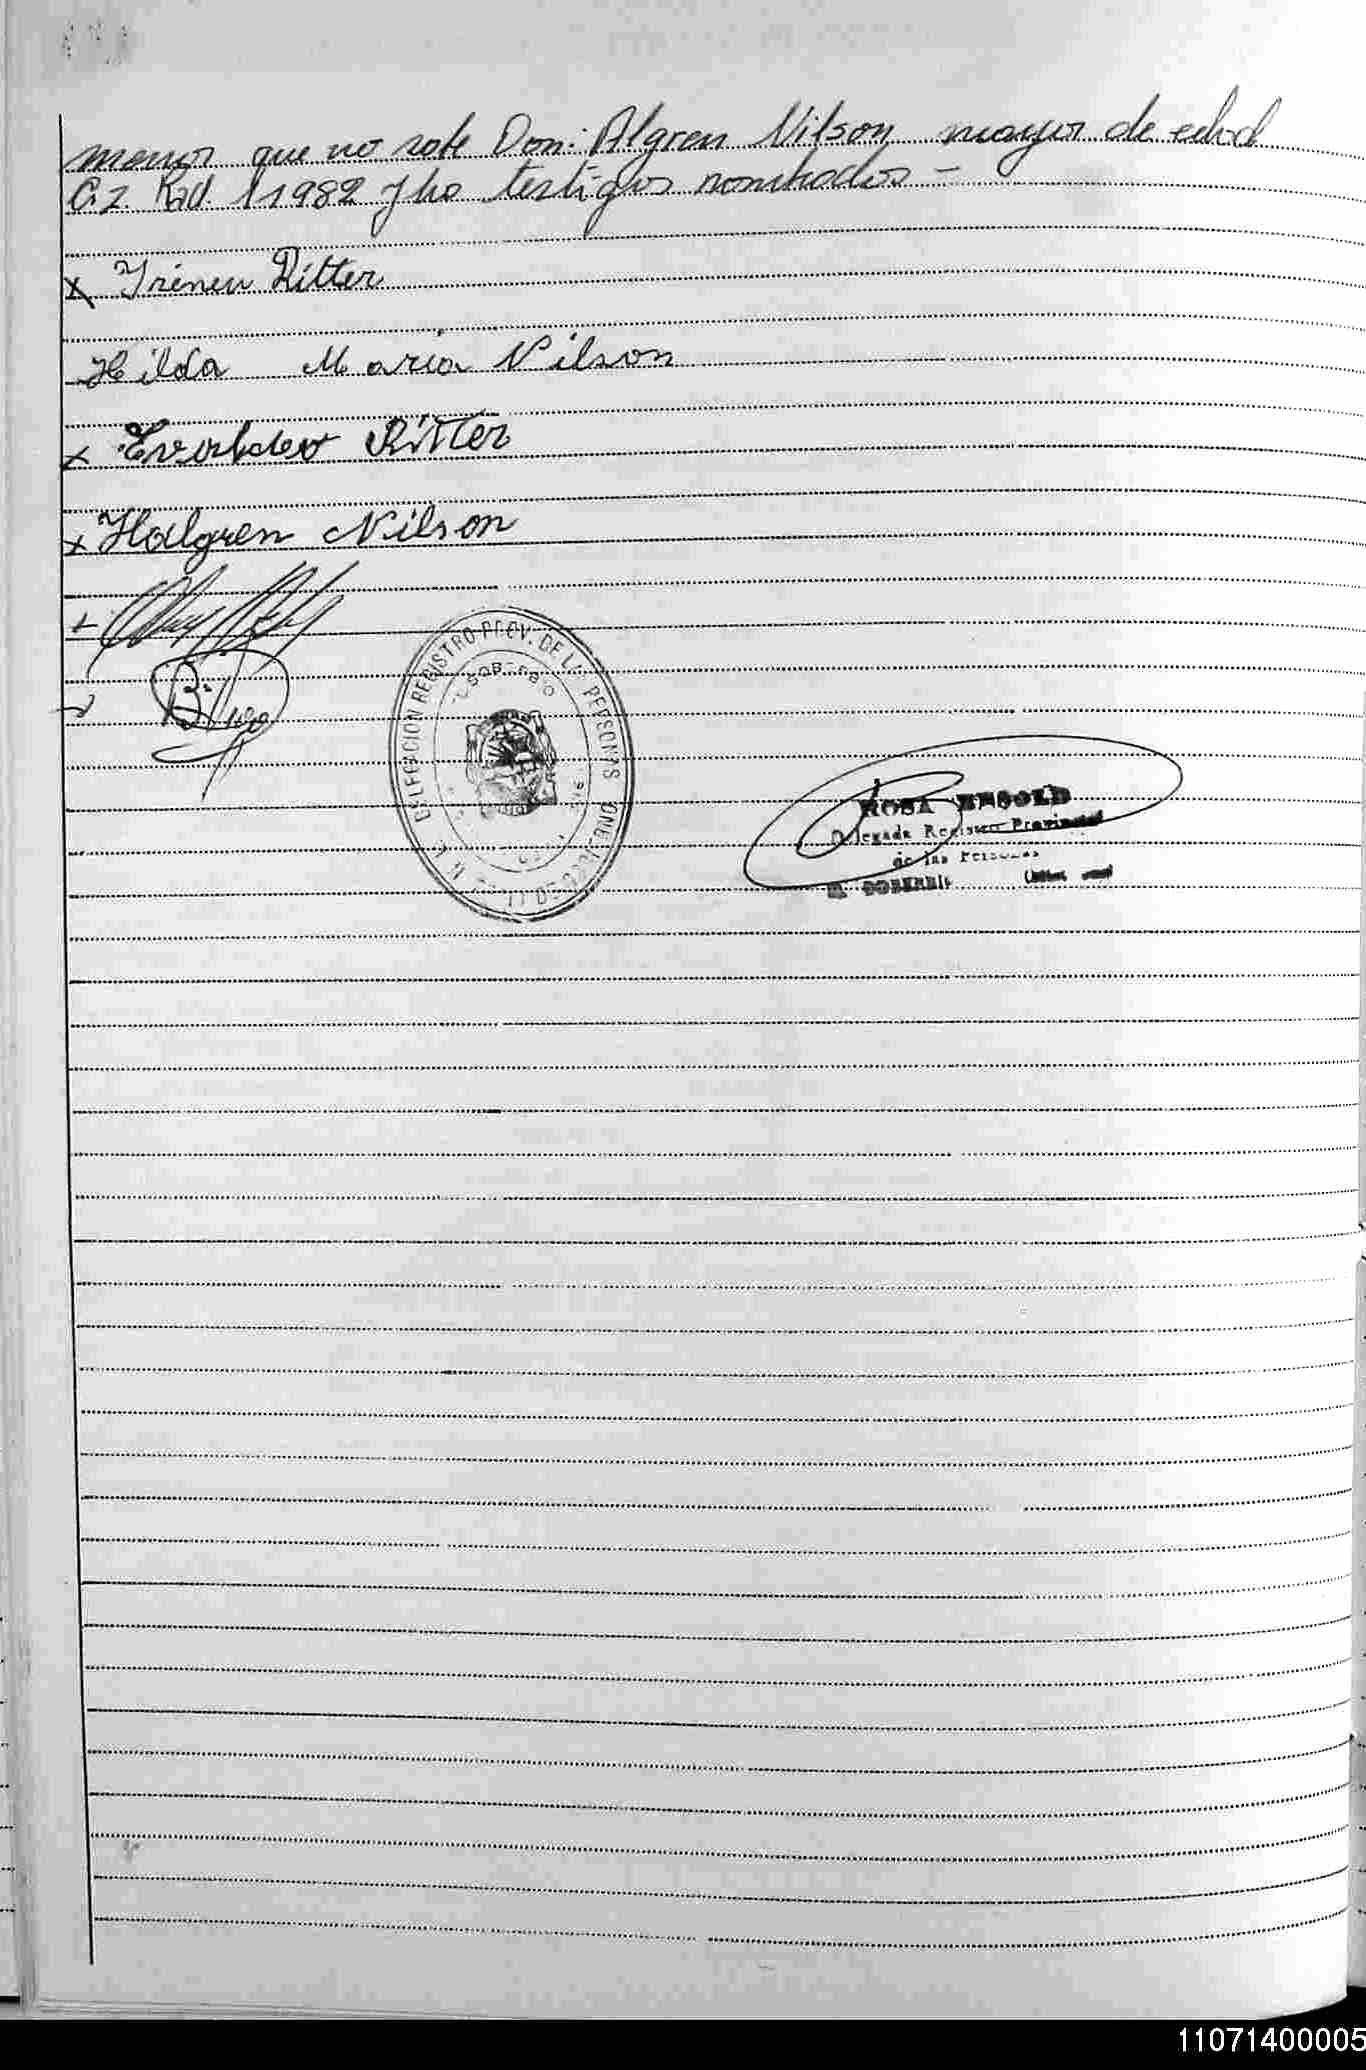 menor que no sabe Don: Algren Nilson mayor de edad
C.I. Rad. 11982 y los testigos nombrados -
x Irineu Ritter
Hilda Maria Nilson
x Evaldeo Ritter
x Halgren Nilson
DELEGACION REGISTRO PROV. DE LAS PERSONAS
EL SOBERBIO
ROSA HESOLD
Delegada Registro Provincial
de las Personas
EL SOBERBIO
11071400005